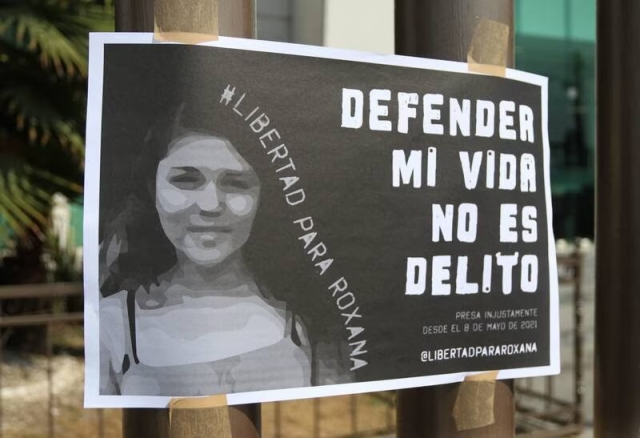 #LIBERTAD PARA ROXANA
DEFENDER
MI VIDA
NO ES
DELITO
PRESA INJUSTAMENTE
DESDE EL 8 DE MAYO DE 2021
@LIBERTADPARAROXANA